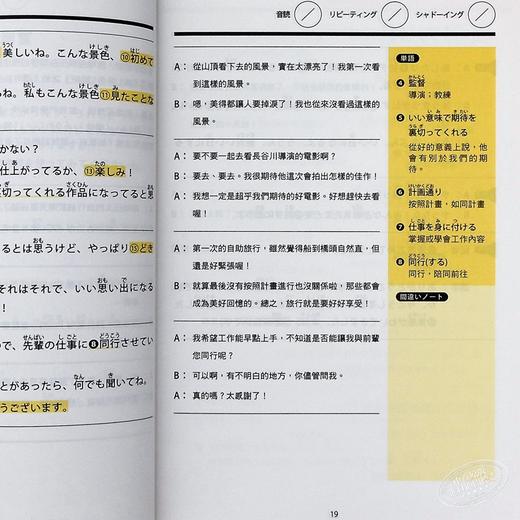 美しいね。こんな景色、⑩初めて
ね。私もこんな景色⑪見たことな
かない?
仕上がってるか、⑬楽しみ!
裏切ってくれる作品になってると思
るとは思うけど、やっぱり⑮どき
それはそれで、いい思い出になる
で、先輩の仕事に❽同行させてい
とがあったら、何でも聞いてね。
うございます。
音読 リピーティング シャドーイング
A:從山頂看下去的風景,實在太漂亮了!我第一次看
到這樣的風景。
B:嗯,美得都讓人要掉淚了!我也從來沒看過這樣的
風景。
A:要不要一起去看長谷川導演的電影啊?
B:要去、要去。我很期待他這次會拍出怎樣的佳作!
A:我想一定是超乎我們期待的好電影。好想趕快去看
喔!
A:第一次的自助旅行,雖然覺得船到橋頭自然直,但
還是好緊張喔!
B:就算最後沒有按照計畫進行也沒關係啦,那些都會
成為美好回憶的。總之,旅行就是要好好享受!
A:我希望工作能早點上手,不知道是否能讓我與前輩
您同行呢?
B:可以啊,有不明白的地方,你儘管問我。
A:真的嗎?太感謝了!
単語
❹ 監督
導演;教練
❺ いい意味で期待を
裏切ってくれる
從好的意義上說,他
會有別於我們的期
待。
❻ 計画通り
按照計畫,如同計畫
❼ 仕事を身に付ける
掌握或學會工作內容
❽ 同行(する)
同行,陪同前往
間違いノート
19